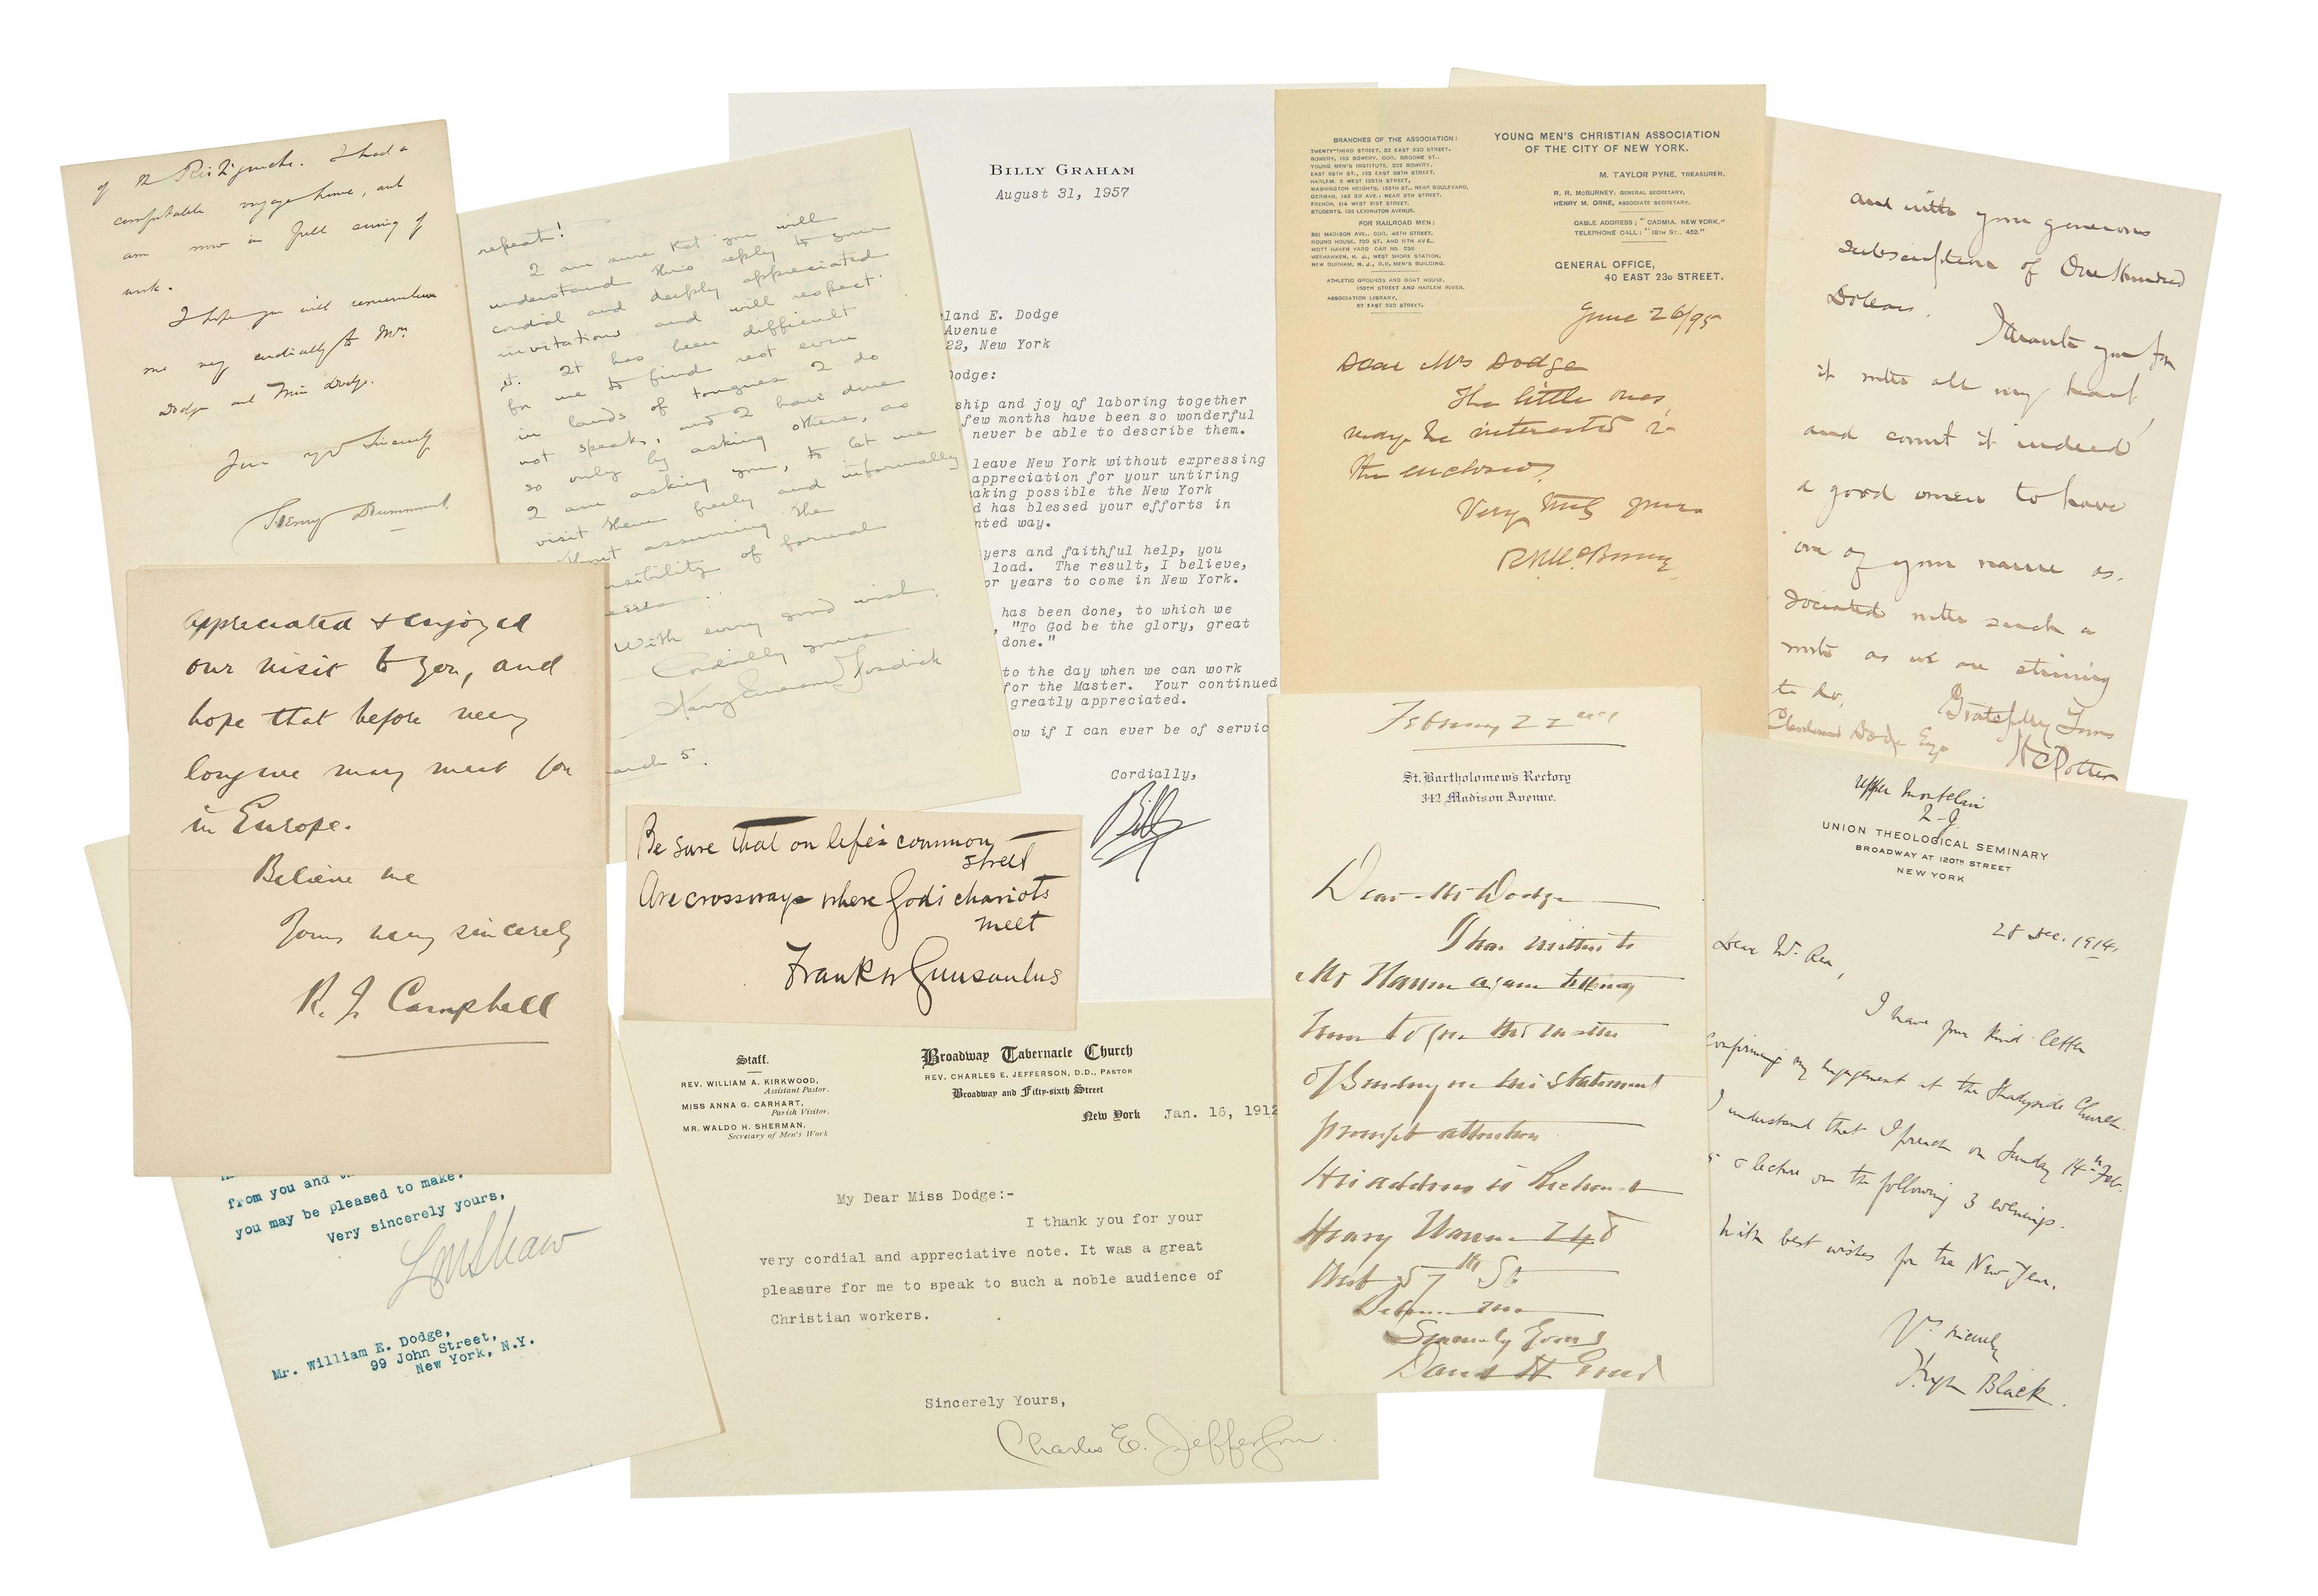 of the Restigouche. I had a
comfortable voyage home, and
am now in full swing of
work.
I hope you will remember
me very cordially to Mrs
Dodge and Miss Dodge.
Yours very sincerely
Henry Drummond.
repeat!
I am sure that you will
understand this reply to your
cordial and deeply appreciated
invitation and will respect
it. It has been difficult
for me to find rest even
in lands of tongues I do
not speak, and I have done
so only by asking others, as
I am asking you, to let me
visit them freely and informally
without assuming the
of formal
With every good wish,
Cordially yours
Harry Emerson Fosdick
March 5.
BILLY GRAHAM
August 31, 1957
land E. Dodge
Avenue
22, New York
Dodge:
ship and joy of laboring together
few months have been so wonderful
never be able to describe them.
leave New York without expressing
appreciation for your untiring
aking possible the New York
d has blessed your efforts in
nted way.
yers and faithful help, you
load. The result, I believe,
or years to come in New York.
has been done, to which we
, "To God be the glory, great
done."
to the day when we can work
for the Master. Your continued
greatly appreciated.
ow if I can ever be of servic
Cordially,
Billy
BRANCHES OF THE ASSOCIATION:
TWENTY-THIRD STREET, 52 EAST 23D STREET.
BOWERY, 153 BOWERY, COR. BROOME ST.,
YOUNG MEN'S INSTITUTE, 222 BOWERY.
EAST 86TH ST., 153 EAST 86TH STREET.
HARLEM, 5 WEST 125TH STREET,
WASHINGTON HEIGHTS, 155TH ST., NEAR BOULEVARD,
GERMAN, 142 2D AVE., NEAR 9TH STREET.
FRENCH, 114 WEST 21ST STREET.
STUDENTS, 136 LEXINGTON AVENUE.
FOR RAILROAD MEN:
361 MADISON AVE., COR. 45TH STREET,
ROUND HOUSE, 72D ST. AND 11TH AVE.,
MOTT HAVEN YARD CAR NO. 230
WEEHAWKEN, N. J., WEST SHORE STATION,
NEW DURHAM, N. J., R.R. MEN'S BUILDING.
ATHLETIC GROUNDS AND BOAT HOUSE,
150TH STREET AND HARLEM RIVER.
ASSOCIATION LIBRARY,
52 EAST 23D STREET.
YOUNG MEN'S CHRISTIAN ASSOCIATION
OF THE CITY OF NEW YORK.
M. TAYLOR PYNE, TREASURER.
R. R. McBURNEY, GENERAL SECRETARY,
HENRY M. ORNE, ASSOCIATE SECRETARY.
CABLE ADDRESS: "CADMIA, NEW YORK."
TELEPHONE CALL: "18TH ST., 452."
GENERAL OFFICE,
40 EAST 23D STREET.
June 26/95
Dear Mrs Dodge
The little ones
may be interested in
the enclosed.
Very truly yours
R.R. McBurney
and with your generous
subscription of One Hundred
Dollars. I thank you for
it with all my heart,
and count it indeed
a good omen to have
one of your name as-
sociated with such a
work as we are striving
to do,
Gratefully Yours
Cleveland Dodge Esq
H C Potter
appreciated & enjoyed
our visit to you, and
hope that before very
long we may meet you
in Europe.
Believe me
Yours very sincerely
R. J. Campbell
Be sure that on life's common
street
Are crossways where God's chariots
meet
Frank W Gunsaulus
February 22nd
St. Bartholomew's Rectory
342 Madison Avenue.
Dear Mr Dodge
I have written to
Mr Hanna again telling
him to give the matter
of
prompt attention
His address is Richard
Henry 248
West 57th St
Believe me
Sincerely Yours
David H Greer
Upper Montclair
N.J.
UNION THEOLOGICAL SEMINARY
BROADWAY AT 120TH STREET
NEW YORK
28 Dec. 1914
Dear Mr. Rea,
I have your kind letter
confirming my engagement at the Shadyside Church.
I understand that I preach on Sunday 14th Feb.
& lecture on the following 3 evenings.
With best wishes for the New Year.
Yrs sincerely
Hugh Black.
from you and
you may be pleased to make.
Very sincerely yours,
L M Shaw
Mr. William E. Dodge,
99 John Street,
New York, N.Y.
Staff.
REV. WILLIAM A. KIRKWOOD,
Assistant Pastor.
MISS ANNA G. CARHART,
Parish Visitor.
MR. WALDO H. SHERMAN,
Secretary of Men's Work
Broadway Tabernacle Church
REV. CHARLES E. JEFFERSON, D.D., PASTOR
Broadway and Fifty-sixth Street
New York Jan. 16, 1912
My Dear Miss Dodge:-
I thank you for your
very cordial and appreciative note. It was a great
pleasure for me to speak to such a noble audience of
Christian workers.
Sincerely Yours,
Charles E. Jefferson.